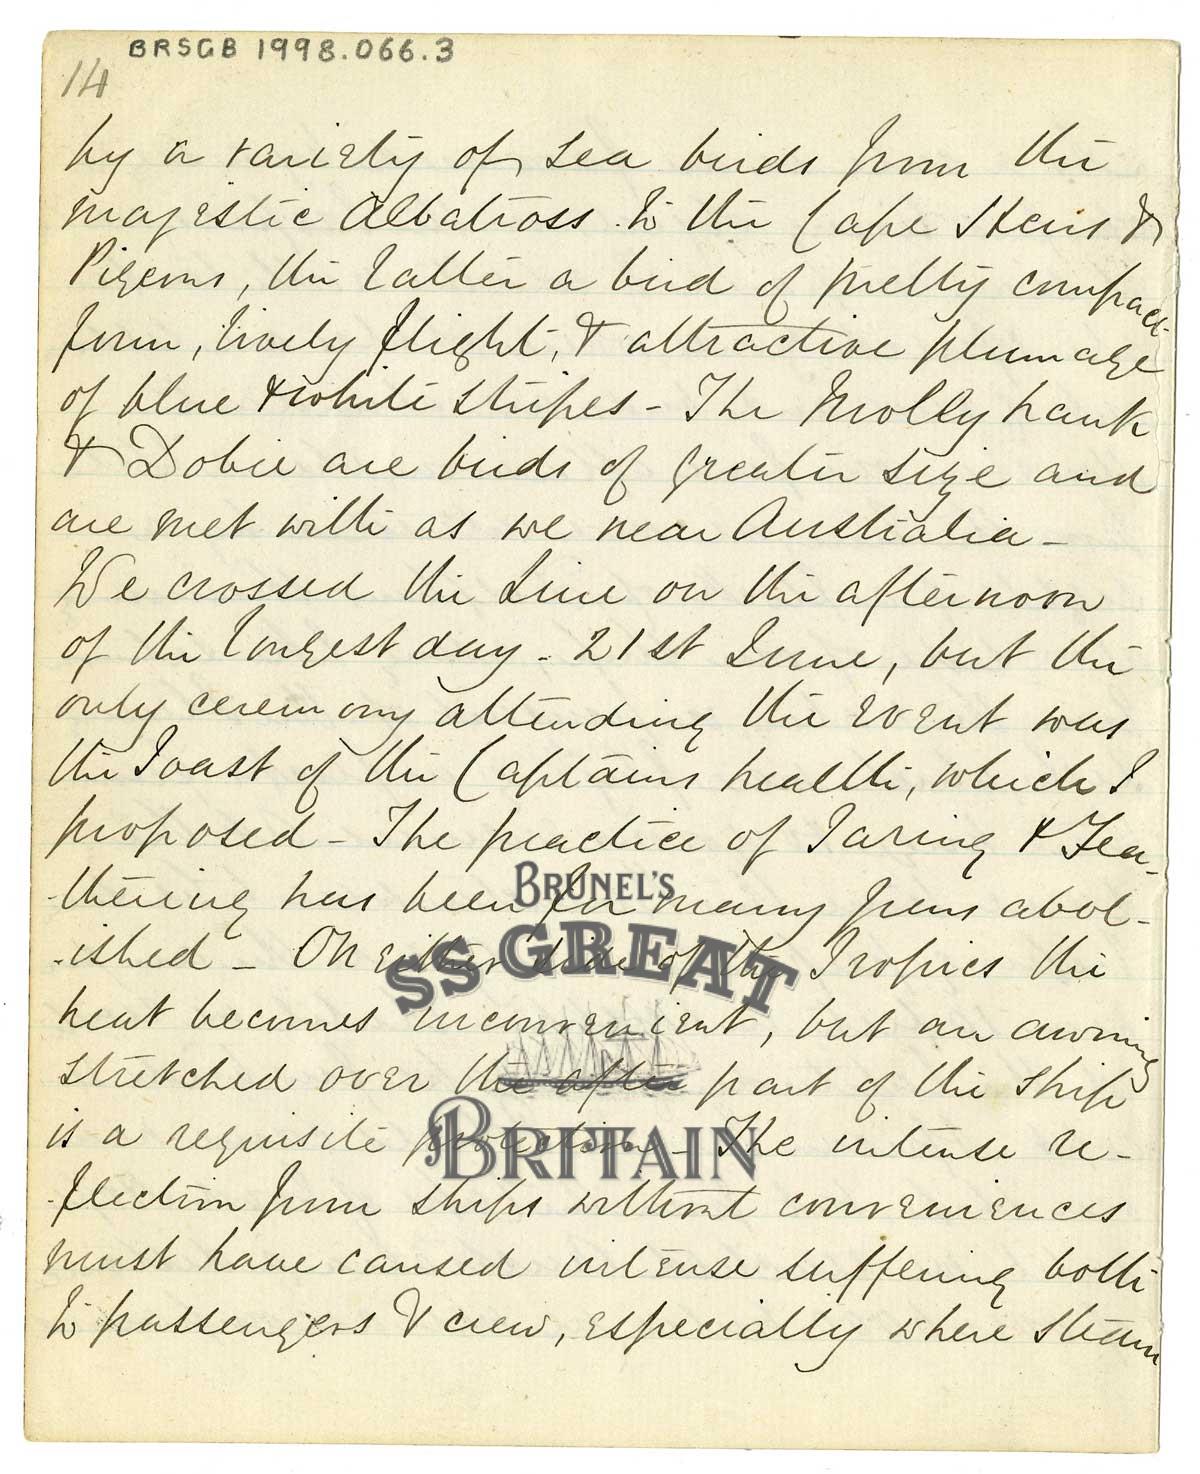 BRSGB 1998.066.3
14
by a variety of sea birds from the
majestic Albatross to the Cape Hens &
Pigeons, the latter a bird of pretty compact
form, lively flight, & attractive plumage
of blue & white stripes - The Mollyhauk
& Dobie are birds of greater size and
are met with as we near Australia -
We crossed the Line on the afternoon
of the longest day - 21st June, but the
only ceremony attending the event was
the Toast of the Captains health, which I
proposed - The practice of Taring & Fea-
-thering has been for many years abol-
-ished - On either side of the Tropics the
heat becomes inconvenient, but an awning
stretched over the after part of the Ship
is a requisite protection - The intense re-
-flection from ships without conveniences
must have caused intense suffering both
to passengers & crew, especially where steam
BRUNEL'S
SS GREAT
BRITAIN